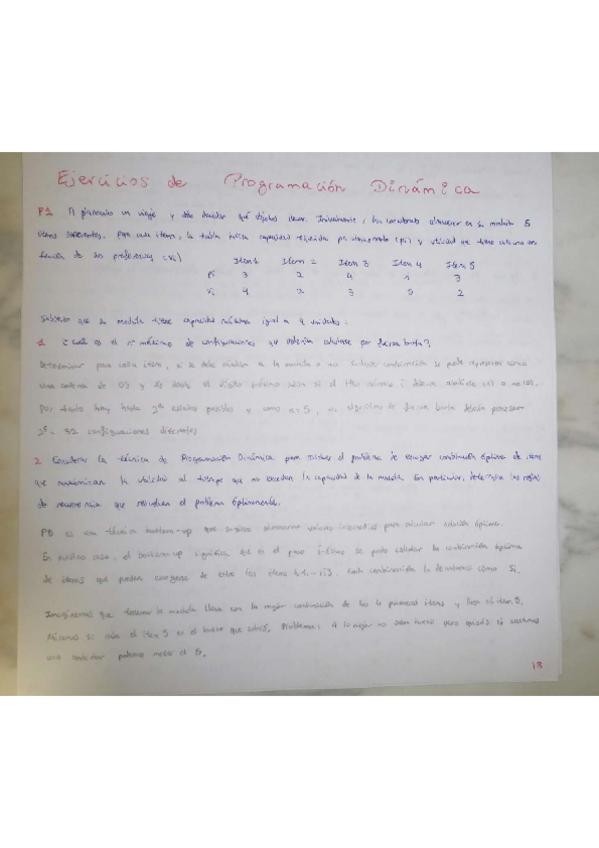 Ejercicios de Programación Dinámica
P1 planeando un viaje y debe decidir qué objetos llevar. Inicialmente, almacenar en su mochila 5
items diferentes. Para cada item, la tabla indica capacidad requerida para almacenarlo (pi) y utilidad que tiene cada uno en
función de sus preferencias (vi)
Item 1 Item 2 Item 3 Item 4 Item 5
pi 3 2 4 3
vi 4 2 3 5 2
Suponiendo que su mochila tiene capacidad máxima igual a 9 unidades:
1. ¿Cuál es el nº máximo de configuraciones que deberían calcularse por fuerza bruta?
Determinar para cada item, si se debe añadir a la mochila o no. combinación se puede representar como
una cadena de 0s y 1s donde el dígito i si el item número i debería añadirse (1) o no (0).
Por tanto hay hasta 2ⁿ estados posibles y como n=5, un algoritmo de fuerza bruta debería procesar
2⁵ = 32 configuraciones diferentes
2. Considerar la técnica de Programación Dinámica para resolver el problema de escoger combinación óptima de items
que maximizan la utilidad al tiempo que no exceden la capacidad de la mochila. En particular, determina las reglas
de recurrencia que resuelven el problema óptimamente.
PD es una técnica bottom-up que sugiere almacenar valores intermedios para calcular solución óptima.
En nuestro caso, el bottom-up significa que en el paso i-ésimo se puede calcular la combinación óptima
de items que pueden escogerse de entre los items {1..i}. Cada combinación la denotamos como Si.
Imaginemos que tenemos la mochila llena con la mejor combinación de los 4 primeros items y llega el item 5.
Miramos si cabe el item 5 en el hueco que sobra. Problema: A lo mejor no cabe pero quizás si
una podemos meter el 5.
13